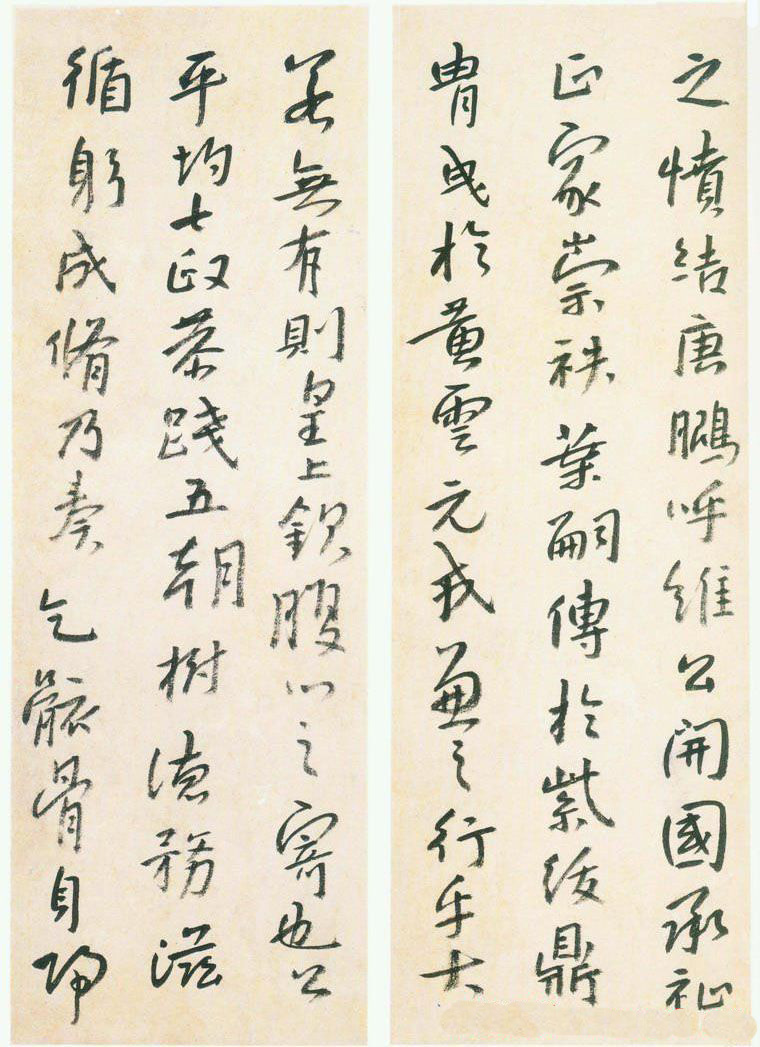 之憤結唐鵬呼維公開國承祉
正家崇袟葉嗣傳於紫綬鼎
胄或於黃雲元戎兼之行乎大
若無有則皇上欽腹心之寄也公
平均七政恭踐五朝樹德務滋
循躬成脩乃奏乞骸骨自歸